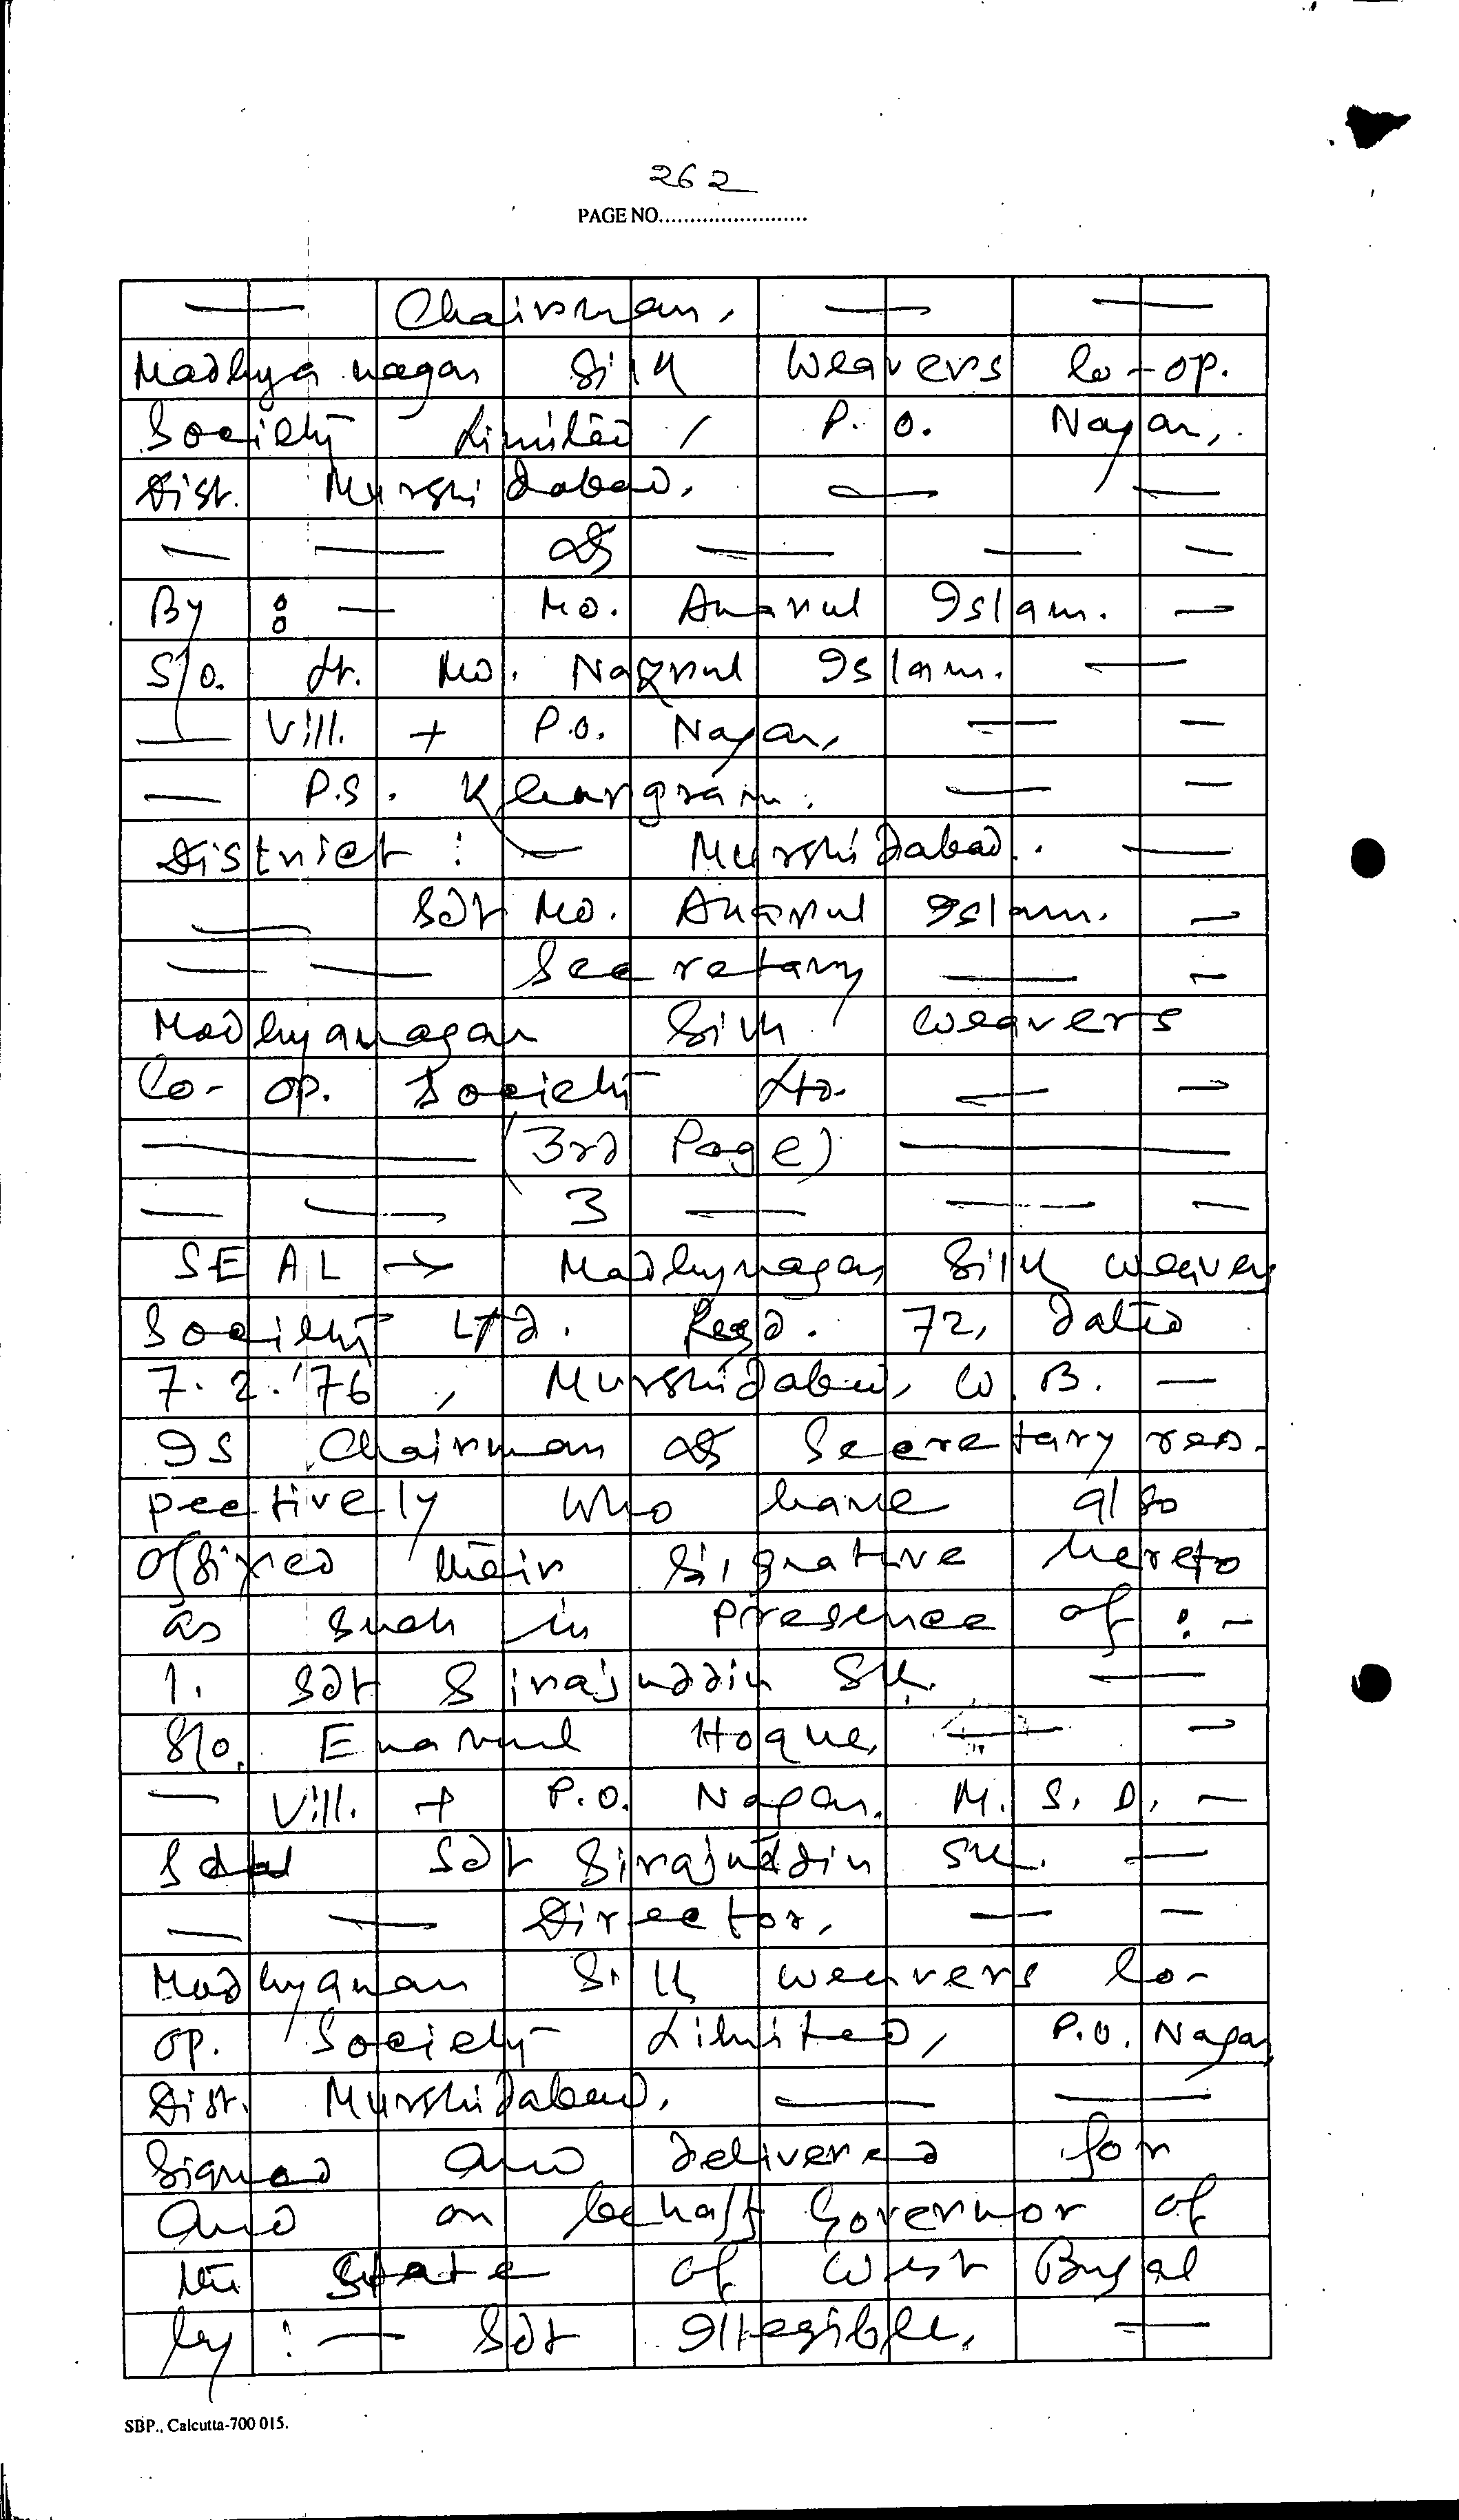 262
PAGE NO........................
— Chairman, — —
Madhya nagar Silk Weavers Co-op.
Society Limited, P.O. Nagar,
Dist. Murshidabad. — —
— — & — — —
By : — Md. Anarul Islam. —
S/o. Lt. Md. Nazrul Islam. —
— Vill. + P.O. Nagar, — —
— P.S. Khargram. — —
District : — Murshidabad. —
— Sd/- Md. Anarul Islam. —
— — Secretary — —
Madhyanagar Silk Weavers
Co-op. Society Ltd. — —
— (3rd Page) —
— — 3 — — —
SEAL → Madhynagar Silk weaver
Society Ltd. Regd. 72, dated
7.2.'76, Murshidabad, W.B. —
Is Chairman & Secretary res-
pectively who have also
affixed their signative hereto
as such in presence of : -
1. Sd/- Sirajuddin Sk. —
S/o. Enamul Hoque, — —
— Vill. + P.O. Nagar. M.S.D. —
Sd/- Sirajuddin Sk. —
— — Director, — —
Madhyanan Silk weavers Co-
op. Society Limited, P.O. Nagar
Dist. Murshidabad. — —
Signed and delivered for
and on behalf Governor of
the State of West Bengal
by : — Sd/- Illegible, —
SBP., Calcutta-700 015.